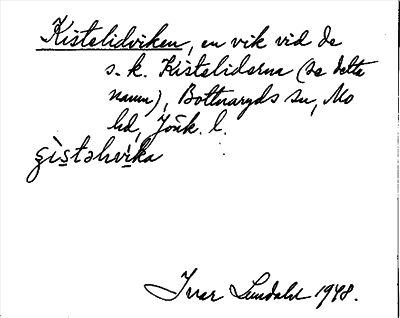 Kistelidviken, en vik vid de
s. k. Kisteliderna (se detta
namn), Bottnaryds sn, Mo
hd, Jönk. l.
Ivar Lundahl 1948.